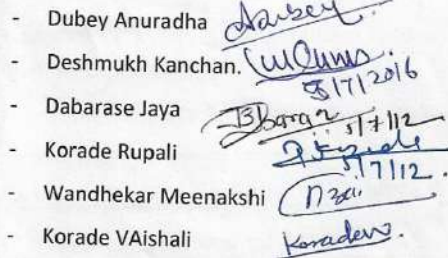 - Dubey Anuradha
- Deshmukh Kanchan.
5/7/2016
- Dabarase Jaya
5/7/12
- Korade Rupali
5/7/12
- Wandhekar Meenakshi
- Korade VAishali